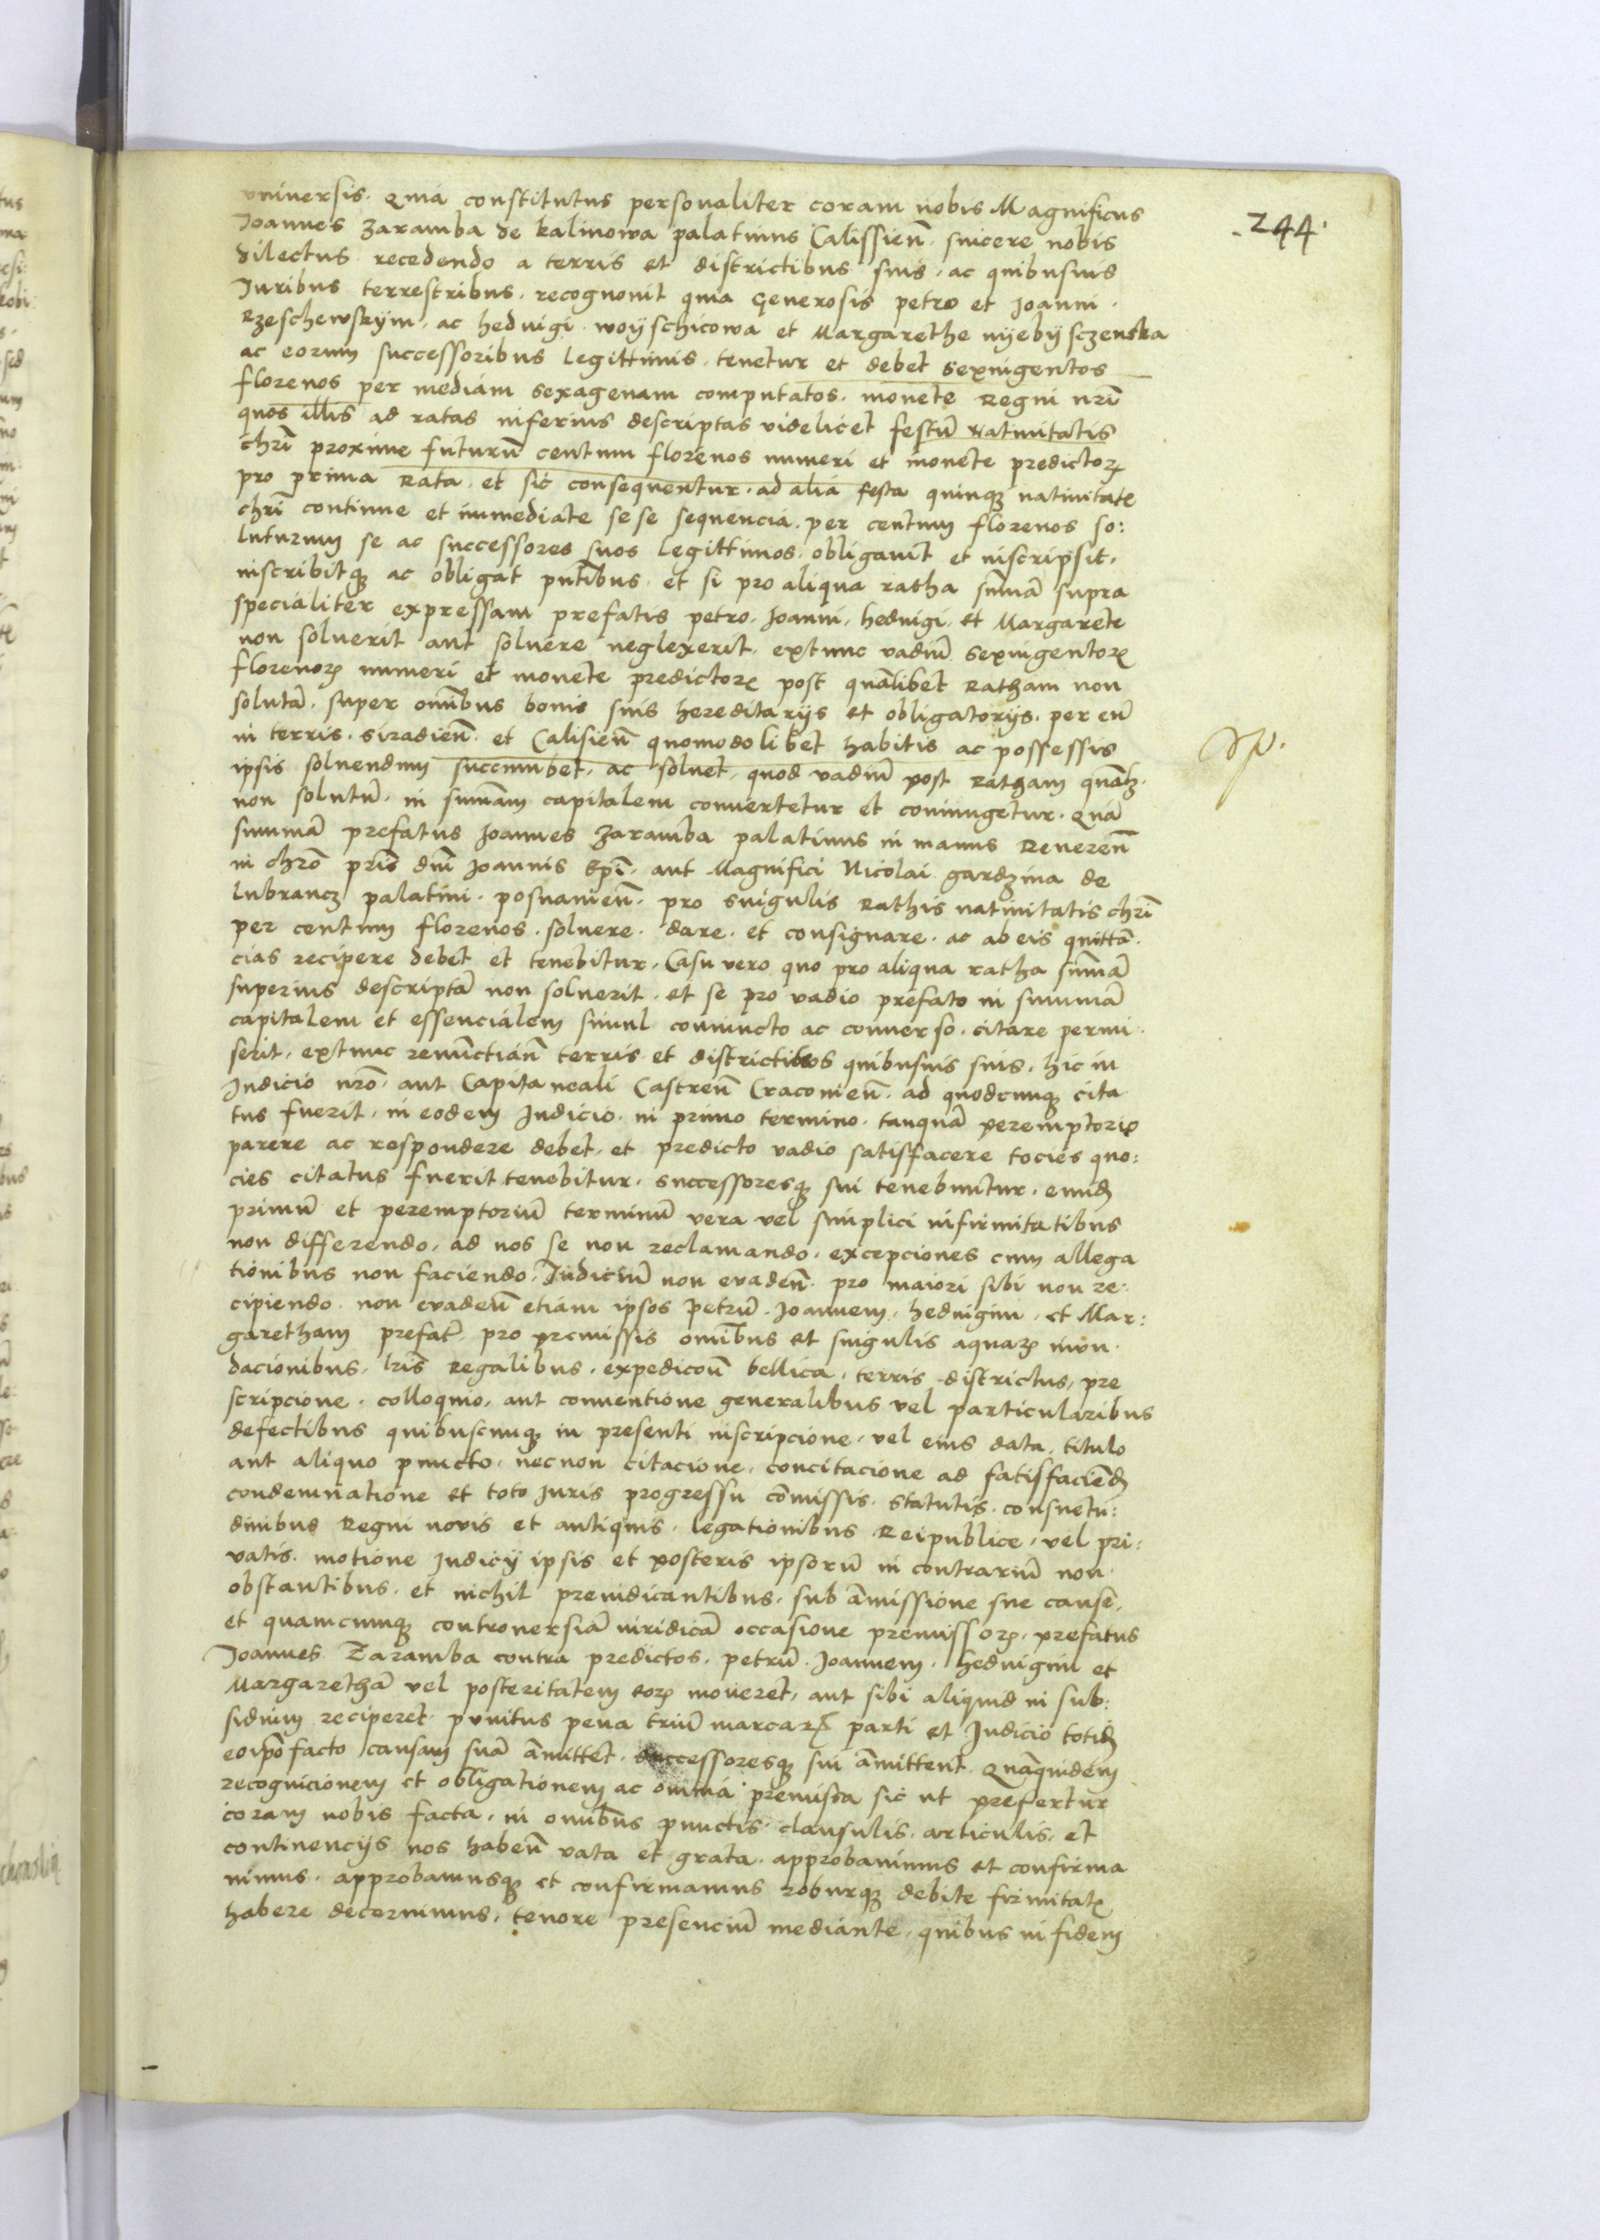 .244.
vniversis. Quia constitutus personaliter coram nobis Magnificus
Joannes Zaramba de Kalinowa palatinus Calissieñ. sincere nobis
dilectus recedendo a terris et districtibus suis, ac quibusuis
Juribus terrestribus. recognouit quia Generosis petro et Joanni.
Rzeschewskym. ac heduigi. woyschicowa et Margarethe nyebysczenska
ac eorum successoribus legittimis. tenetur et debet sexingentos
florenos per mediam sexagenam computatos. monete Regni nrī
quos illis ad ratas inferius descriptas videlicet festū natiuitatis
chrī proxime futurū centum florenos numeri et monete predictoꝝ
pro prima Rata. et sic consequentur. ad alia festa quinqꝫ natiuitatę
chrī continue et immediate sese sequencia. per centum florenos so:
luturum se ac successores suos legittimos. obligauit et inscripsit.
inscribitqꝫ ac obligat pn̄tibus. et si pro aliqua ratha sum̄ā supra
specialiter expressam prefatis petro. Joanni. heduigi. et Margarete
non soluerit aut soluere neglexerit. extunc vadiū sexingentoꝝ
florenoꝝ numeri et monete predictoꝝ post quālibet Ratham non
solutā. super om̄ibus bonis suis hereditarijs et obligatorijs. per eū
in terris. siradieñ. et Calisieñ quomodolibet habitis ac possessis
ipsis soluendum succumbet. ac soluet. quod vadiū post Ratham quālꝫ.
non solutū. in sum̄am capitalem conuertetur et coniungetur. Quā
summā prefatus Joannes Zaramba palatinus in manus Reuereñ
in chrō pris̄ dn̄i Joannis Ep̄i. aut Magnifici Nicolai gardzina de
lubrancz palatini. posnanieñ. pro singulis Rathis natiuitatis chrī
per centum florenos. soluere. dare. et consignare. ac ab eis quittā.
cias recipere debet et tenebitur. Casu vero quo pro aliqua ratha sum̄ā
superius descriptā non soluerit. et se pro vadio prefato in summā
capitalem et essencialem simul coniuncto ac conuerso. citare permi.
serit. extunc renūctiañ terris et districtibos quibusuis suis. hic in
Judicio nrō. aut Capitaneali Castreñ Cracouieñ. ad quodcunqꝫ cita
tus fuerit. in eodem Judicio. in primo termino. tanquā peremptorio
parere ac respondere debet. et predicto vadio satisfacere tocies quo:
cies citatus fuerit tenebitur. successoresqꝫ sui tenebuntur. eundꝫ
primū et peremptoriū terminū vera vel simplici infirmitatibus
non differendo. ad nos se non reclamando. excepciones cum allega
tionibus non faciendo. Judiciū non euadeñ. pro maiori sibi non re:
cipiendo. non euadeñ etiam ipsos Petrū. Joannem. heduigim. et Mar:
garetham prefatę pro premissis om̄ibus et singulis aquaꝝ inun.
dacionibus. lrīs Regalibus. expedicoñ bellica. terris districtus, pre
scripcione. colloquio. aut conuentione generalibus vel particularibus
defectibus quibuscunqꝫ in presenti inscripcione. vel eius data. titulo
aut aliquo puncto. necnon citacione. concitacione ad satisfaciēdꝫ
condemnatione et toto juris progressu com̄issis. statutis. consuetu:
dinibus Regni nouis et antiquis. legationibus Reipublice. vel pri:
uatis. motione Judicij ipsis et posteris ipsorū in contrariū non
obstantibus. et nichil preiudicantibus. sub am̄issione sue cause.
et quamcunqꝫ controuersiā iuridicā occasione premissoꝝ. prefatus
Joannes Zaramba contra predictos. petrū. Joannem. heduigim et
Margarethā vel posteritatem eoꝝ moueret. aut sibi aliquid in sub:
sidium reciperet. punitus pena triū marcaꝝ parti et Judicio totidꝫ
eoip̄o facto causam suā am̄ittet. successoresqꝫ sui am̄ittent. Quāquidem
recognicionem et obligationem ac omnia premissa sic ut prefertur
coram nobis facta. in om̄ibus punctis. clausulis. articulis. et
continencijs nos habeñ rata et grata. approbauimus et confirma
uimus. approbamusqꝫ et confirmamus roburqꝫ debite firmitatę
habere decernimus. tenore presenciū mediante. quibus in fidem